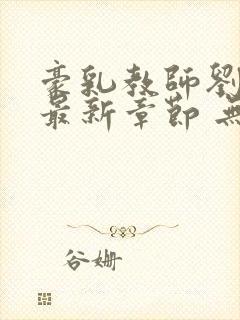 豪乳教師劉
最新章節 無
谷姗